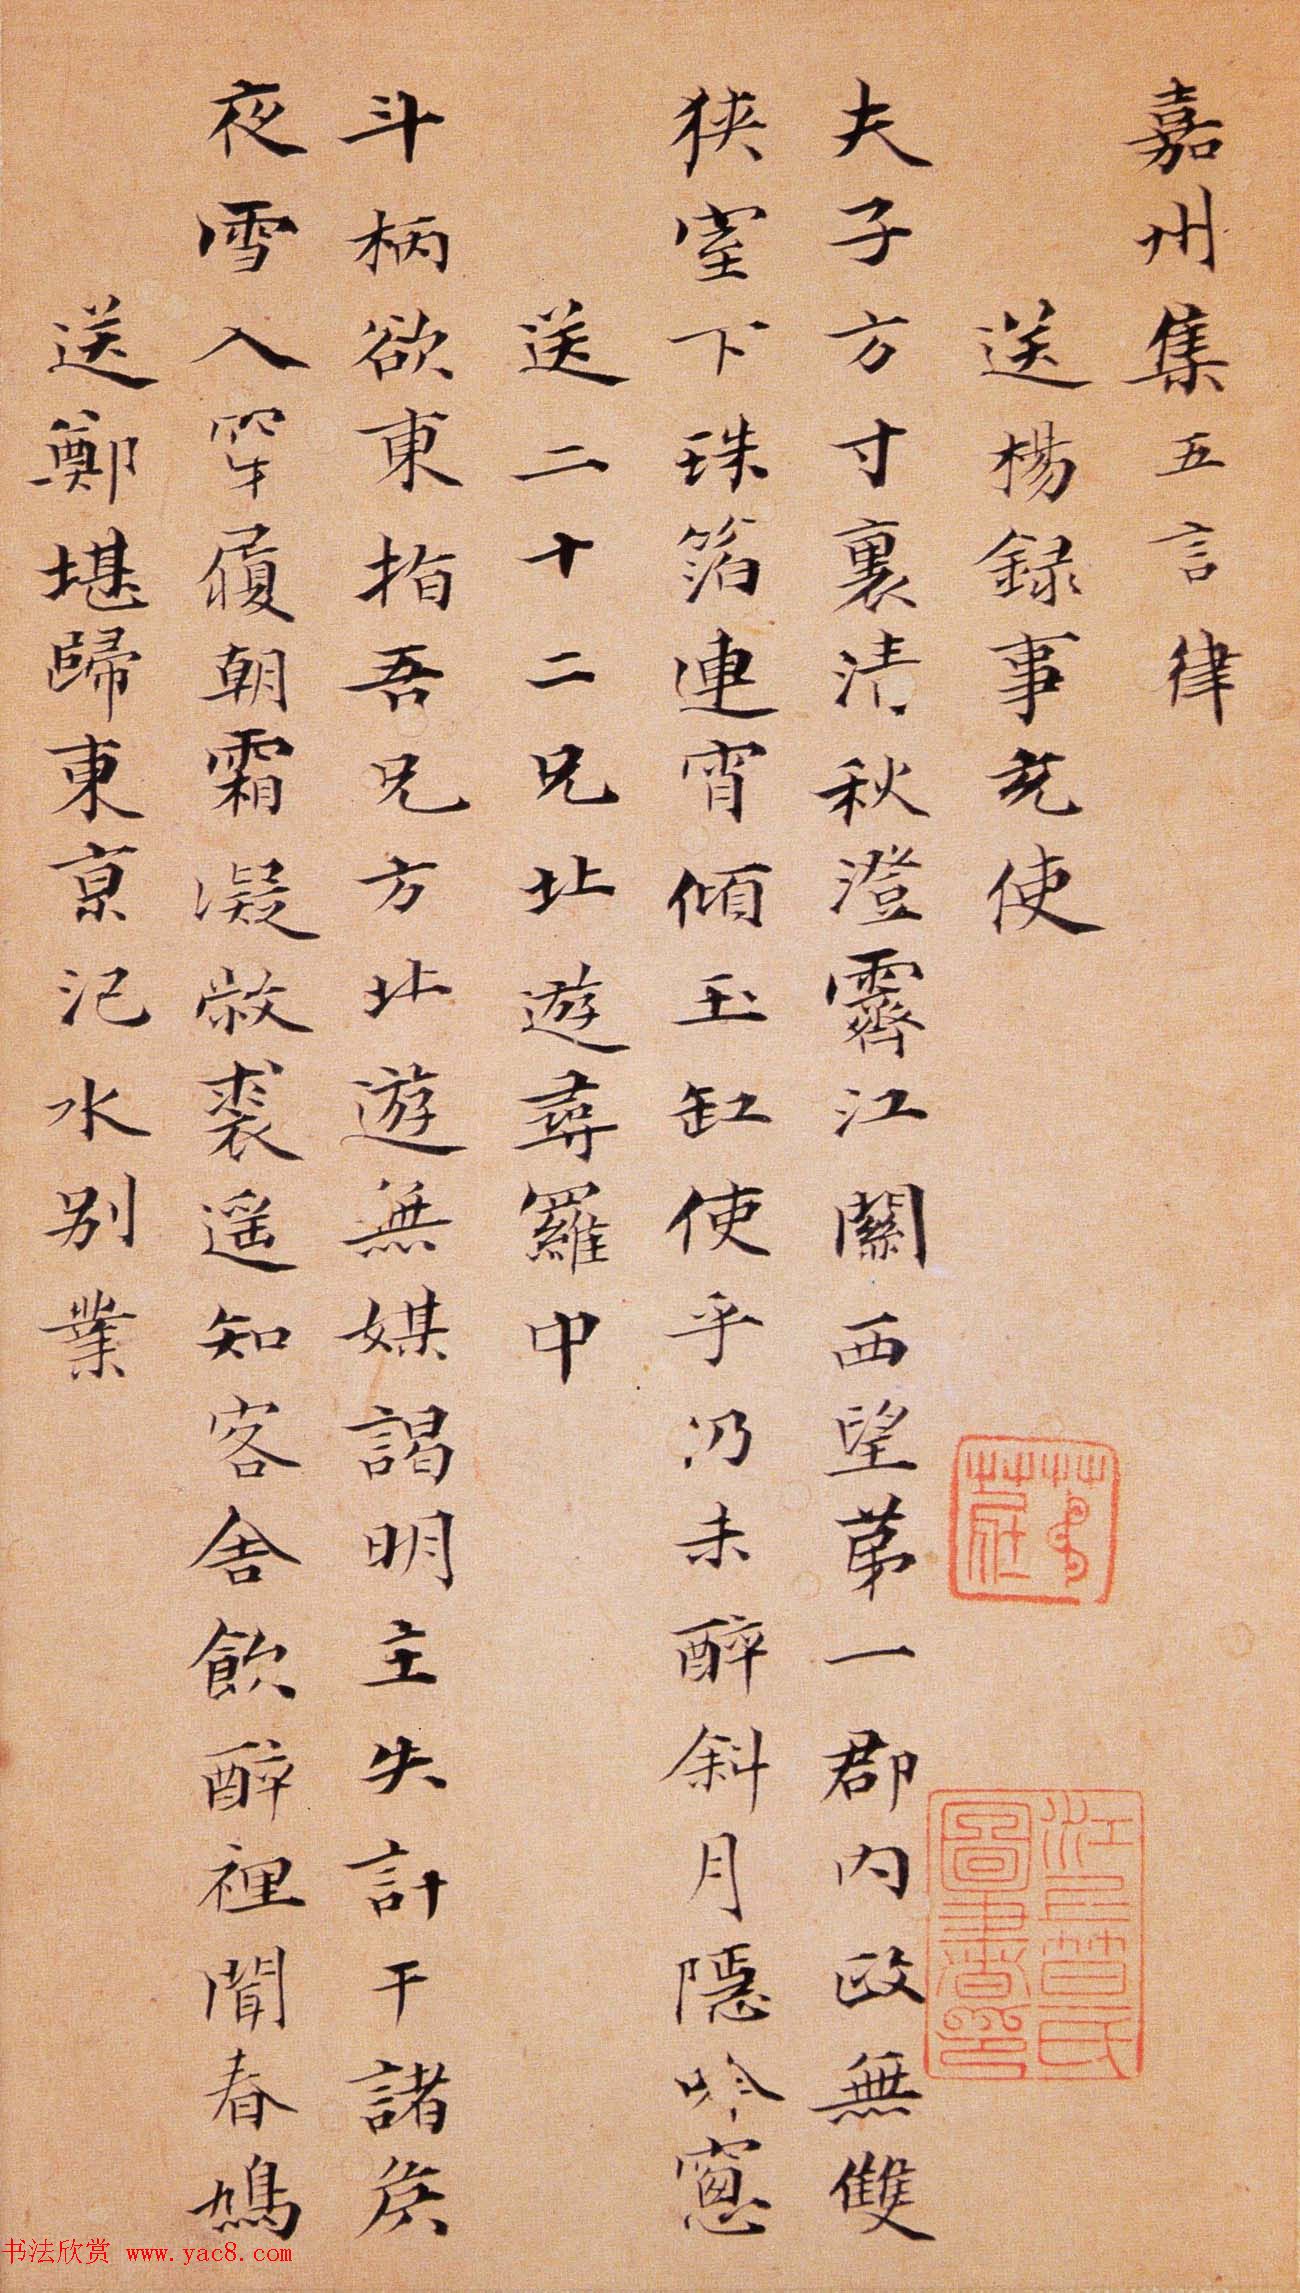 嘉州集五言律
送楊録事充使
夫子方寸裏清秋澄霽江關西望第一郡內政無雙
狹室下珠箔連宵傾玉缸使乎仍未醉斜月隱吟窻
送二十二兄北遊尋羅中
斗柄欲東指吾兄方北遊無媒謁明主失計干諸侯
夜雪入穿履朝霜凝敝裘遥知客舍飲醉裡聞春鳩
送鄭堪歸東京汜水別業
書法欣赏 www.yac8.com